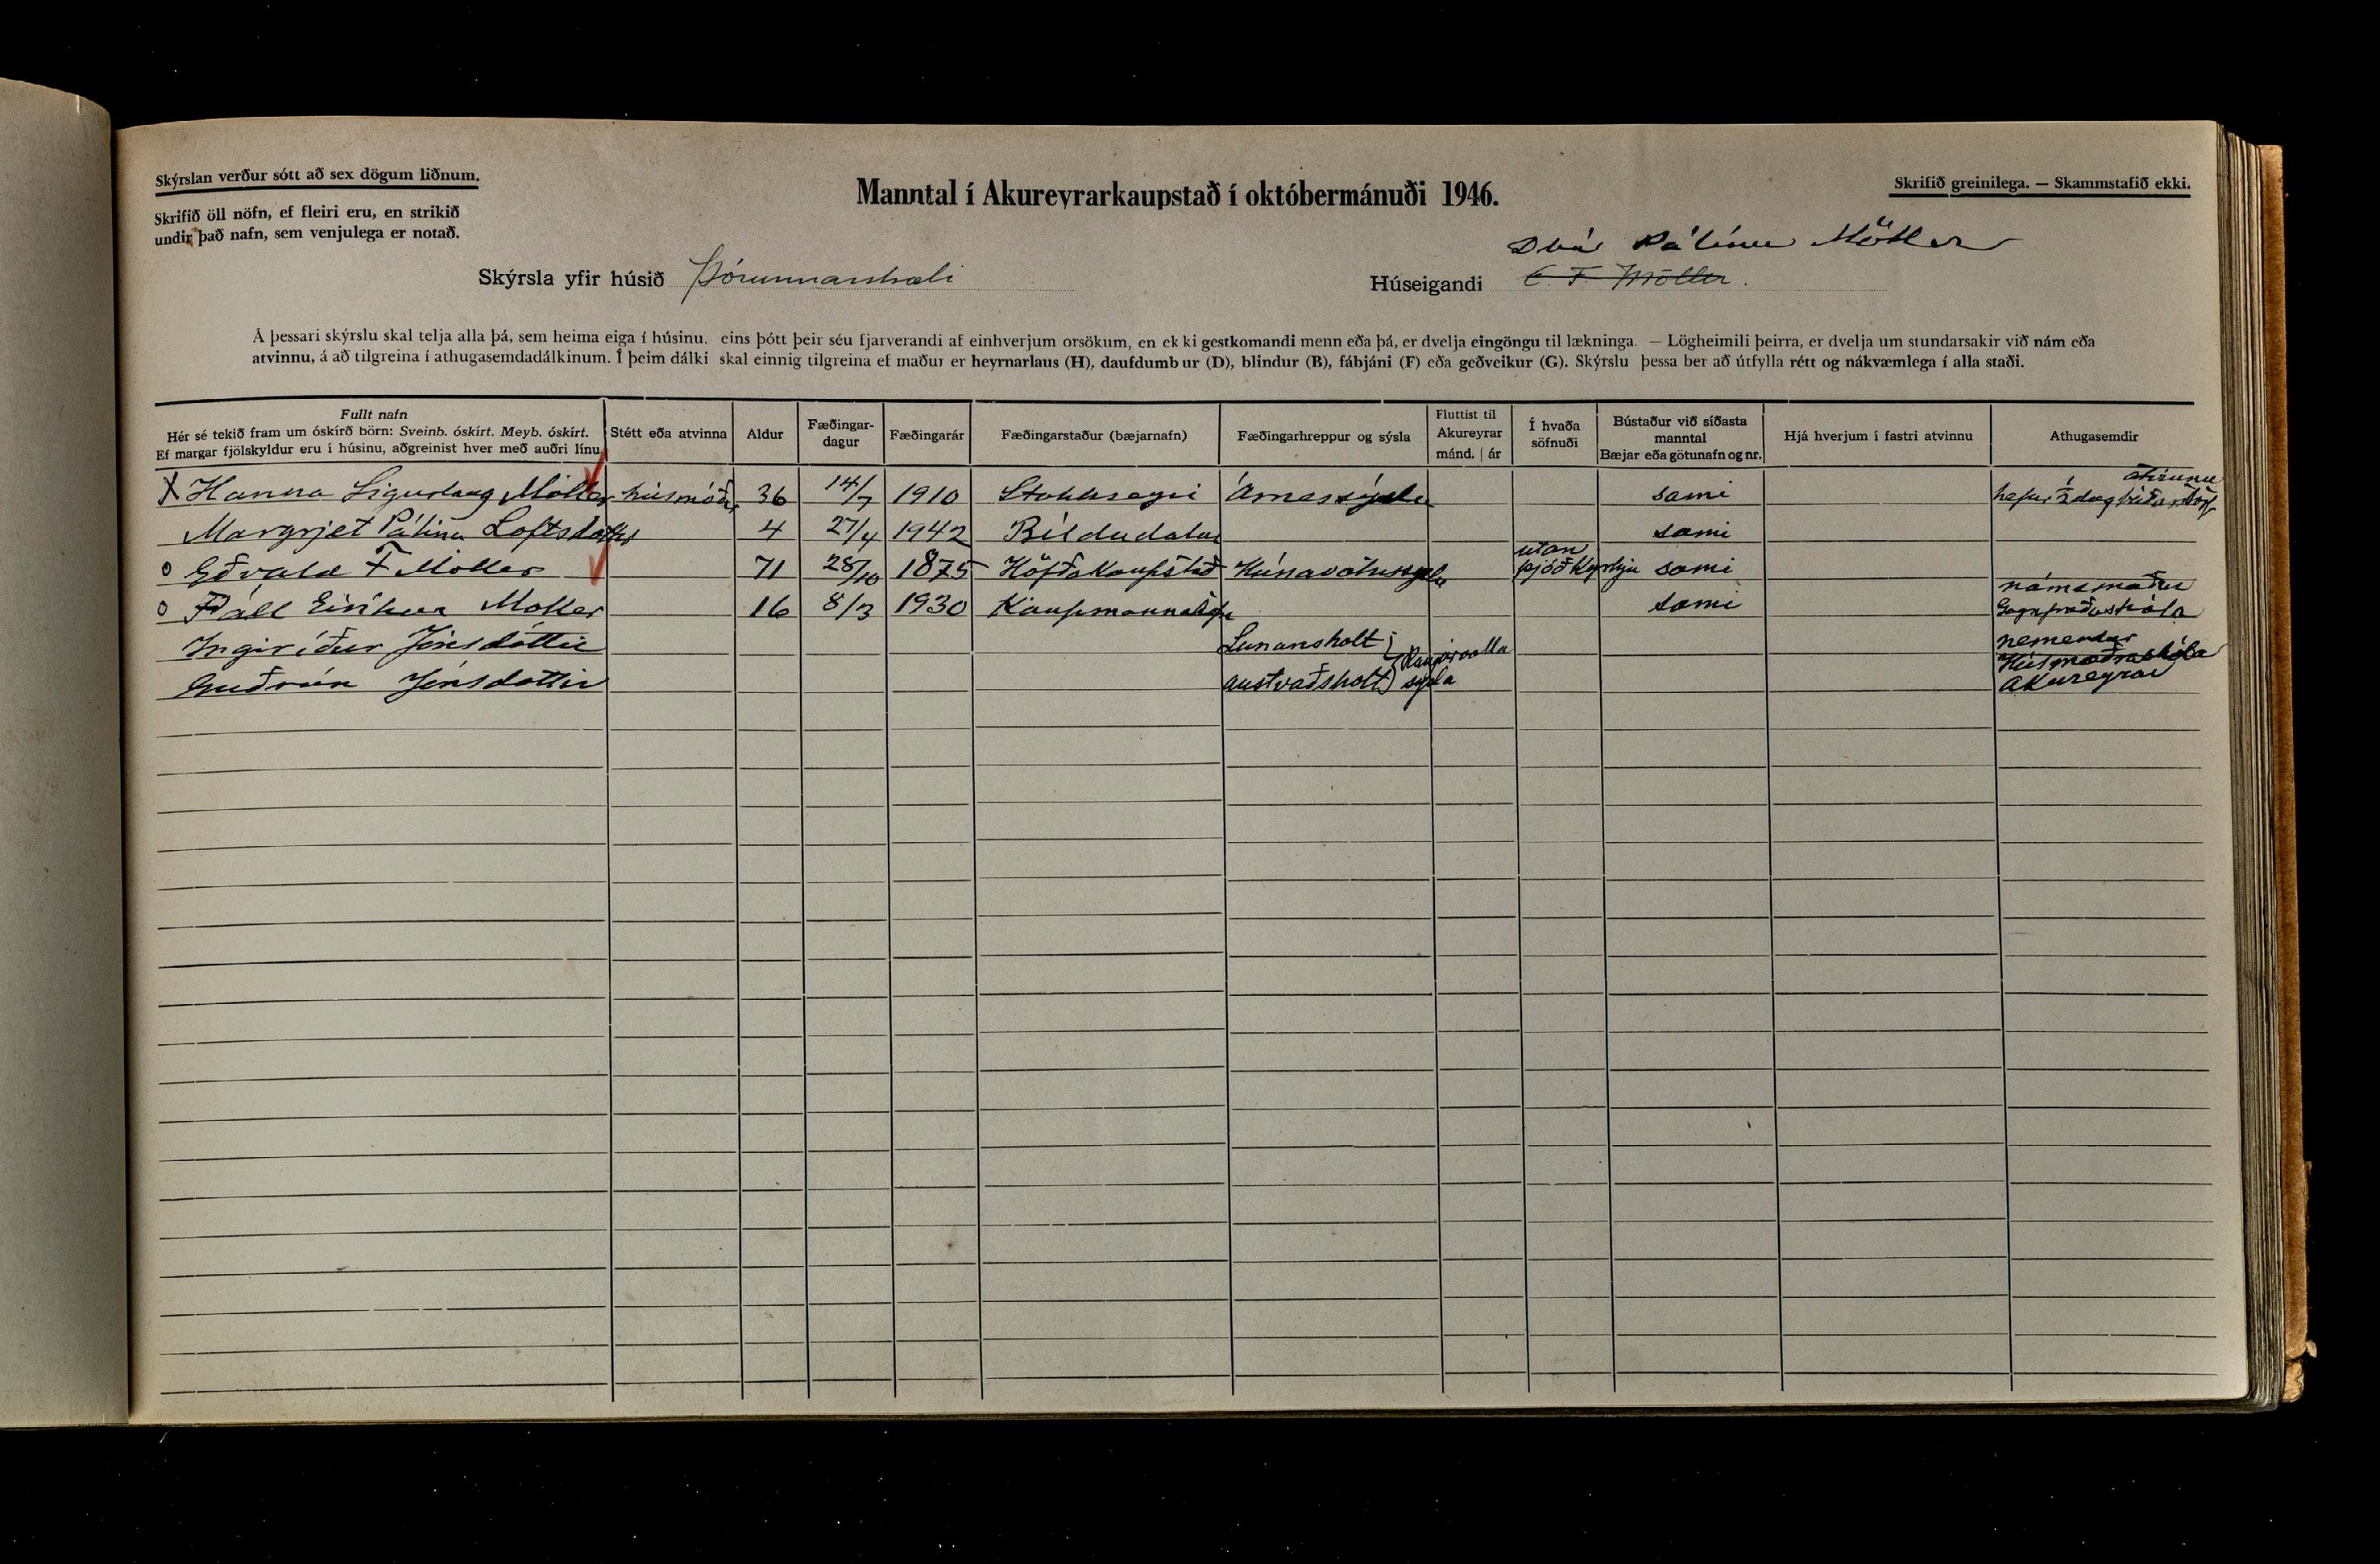 Skýrslan verður sótt að sex dögum liðnum.
Skrifið öll nöfn, ef fleiri eru, en strikið
undir það nafn, sem venjulega er notað.
Manntal í Akureyrarkaupstað í októbermánuði 1946.
Skrifið greinilega. — Skammstafið ekki.
Skýrsla yfir húsið Þórunnarstræti
Dbú Pálínu Möller
Húseigandi E. F. Möller.
Á þessari skýrslu skal telja alla þá, sem heima eiga í húsinu, eins þótt þeir séu fjarverandi af einhverjum orsökum, en ekki gestkomandi menn eða þá, er dvelja eingöngu til lækninga. — Lögheimili þeirra, er dvelja um stundarsakir við nám eða
atvinnu, á að tilgreina í athugasemdadálkinum. Í þeim dálki skal einnig tilgreina ef maður er heyrnarlaus (H), daufdumbur (D), blindur (B), fábjáni (F) eða geðveikur (G). Skýrslu þessa ber að útfylla rétt og nákvæmlega í alla staði.
Fullt nafn
Hér sé tekið fram um óskírð börn: Sveinb. óskírt. Meyb. óskírt.
Ef margar fjölskyldur eru í húsinu, aðgreinist hver með auðri línu.
Stétt eða atvinna
Aldur
Fæðingar-
dagur
Fæðingarár
Fæðingarstaður (bæjarnafn)
Fæðingarhreppur og sýsla
Fluttist til
Akureyrar
mánd. | ár
Í hvaða
söfnuði
Bústaður við síðasta
manntal
Bæjar eða götunafn og nr.
Hjá hverjum í fastri atvinnu
Athugasemdir
X Hanna Sigurlaug Möller húsmóðir 36 14/7 1910 Stokkseyri Árnessýslu sami hefur ½ dag
Margrjet Pálína Loftsdóttir 4 27/4 1942 Bíldudalur sami
o Eðvald F Möller 71 28/10 1875 Höfðakaupstað Húnavatnssýslu utan þjóðkyrkju sami
o Páll Eiríkur Möller 16 8/3 1930 Kaupmannahöfn sami námsmaður Gagnfræðaskóla
Ingiríður Jónsdóttir Lunansholt nemendur
Guðrún Jónsdóttir Austvaðsholt } Rangárvalla sýsla Húsmæðraskóla Akureyrar